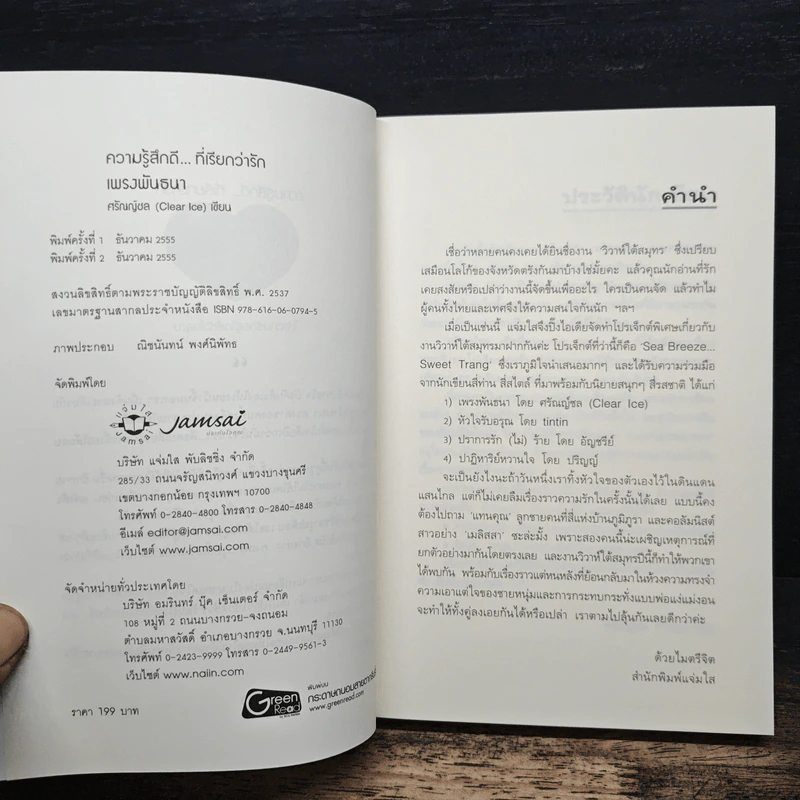 ความรู้สึกดี... ที่เรียกว่ารัก
เพรงพันธนา
ศรัณญ์ชล (Clear Ice) เขียน
พิมพ์ครั้งที่ 1 ธันวาคม 2555
พิมพ์ครั้งที่ 2 ธันวาคม 2555
สงวนลิขสิทธิ์ตามพระราชบัญญัติลิขสิทธิ์ พ.ศ. 2537
เลขมาตรฐานสากลประจำหนังสือ ISBN 978-616-06-0794-5
ภาพประกอบ ณิชนันทน์ พงศ์นิพัทธ
จัดพิมพ์โดย
แจ่มใส
Jamsai
Jamsai
บริษัท แจ่มใส พับลิชชิ่ง จำกัด
285/33 ถนนจรัญสนิทวงศ์ แขวงบางขุนศรี
เขตบางกอกน้อย กรุงเทพฯ 10700
โทรศัพท์ 0-2840-4800 โทรสาร 0-2840-4848
อีเมล์ editor@jamsai.com
เว็บไซต์ www.jamsai.com
จัดจำหน่ายทั่วประเทศโดย
บริษัท อมรินทร์ บุ๊ค เซ็นเตอร์ จำกัด
108 หมู่ที่ 2 ถนนบางกรวย-จงถนอม
ตำบลมหาสวัสดิ์ อำเภอบางกรวย จ.นนทบุรี 11130
โทรศัพท์ 0-2423-9999 โทรสาร 0-2449-9561-3
เว็บไซต์ www.naiin.com
ราคา 199 บาท
Green
Read
พิมพ์บน
กระดาษถนอมสายตากรีนรี
www.greenread.com
คำนำ
เชื่อว่าหลายคนคงเคยได้ยินชื่องาน 'วิวาห์ใต้สมุทร' ซึ่งเปรียบ
เสมือนโลโก้ของจังหวัดตรังกันมาบ้างใช่มั้ยคะ แล้วคุณนักอ่านที่รัก
เคยสงสัยหรือเปล่าว่างานนี้จัดขึ้นเพื่ออะไร ใครเป็นคนจัด แล้วทำไม
ผู้คนทั้งไทยและเทศจึงให้ความสนใจกันนัก ฯลฯ
เมื่อเป็นเช่นนี้ แจ่มใสจึงปิ๊งไอเดียจัดทำโปรเจ็กต์พิเศษเกี่ยวกับ
งานวิวาห์ใต้สมุทรมาฝากกันค่ะ โปรเจ็กต์ที่ว่านี้ก็คือ 'Sea Breeze...
Sweet Trang' ซึ่งเราภูมิใจนำเสนอมากๆ และได้รับความร่วมมือ
จากนักเขียนสี่ท่าน สี่สไตล์ ที่มาพร้อมกับนิยายสนุกๆ สี่รสชาติ ได้แก่
1) เพรงพันธนา โดย ศรัณญ์ชล (Clear Ice)
2) หัวใจรับอรุณ โดย tintin
3) ปราการรัก (ไม่) ร้าย โดย อัญชรีย์
4) ปาฏิหาริย์หวานใจ โดย ปริญญ์
จะเป็นยังไงนะถ้าวันหนึ่งเราทิ้งหัวใจของตัวเองไว้ในดินแดน
แสนไกล แต่ก็ไม่เคยลืมเรื่องราวความรักในครั้งนั้นได้เลย แบบนี้คง
ต้องไปถาม 'แทนคุณ' ลูกชายคนที่สี่แห่งบ้านภูมิภูรา และคอลัมนิสต์
สาวอย่าง 'เมลิสสา' ซะล่ะมั้ง เพราะสองคนนี้น่ะเผชิญเหตุการณ์ที่
ยกตัวอย่างมากันโดยตรงเลย และงานวิวาห์ใต้สมุทรปีนี้ก็ทำให้พวกเขา
ได้พบกัน พร้อมกับเรื่องราวแต่หนหลังที่ย้อนกลับมาในห้วงความทรงจำ
ความเอาแต่ใจของชายหนุ่มและการกระทบกระทั่งแบบพ่อแง่แม่งอน
จะทำให้ทั้งคู่ลงเอยกันได้หรือเปล่า เราตามไปลุ้นกันเลยดีกว่าค่ะ
ด้วยไมตรีจิต
สำนักพิมพ์แจ่มใส